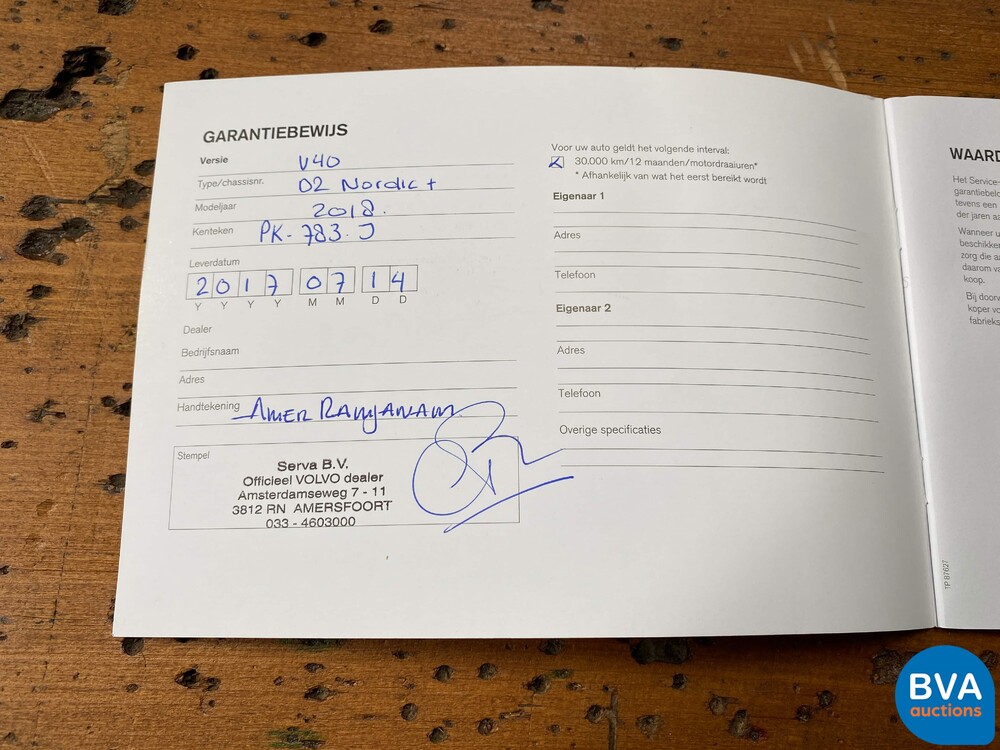 GARANTIEBEWIJS
Versie V40
Type/chassisnr. D2 Nordic +
Modeljaar 2018.
Kenteken PK-783-J
Leverdatum
2017 07 14
Y Y Y Y M M D D
Dealer
Bedrijfsnaam
Adres
Handtekening AMER
Stempel
Serva B.V.
Officieel VOLVO dealer
Amsterdamseweg 7 - 11
3812 RN AMERSFOORT
033 - 4603000
Voor uw auto geldt het volgende interval:
30.000 km/12 maanden/motordraaiuren*
* Afhankelijk van wat het eerst bereikt wordt
Eigenaar 1
Adres
Telefoon
Eigenaar 2
Adres
Telefoon
Overige specificaties
WAARD
Het Service-
garantiebelo
tevens een
der jaren aa
Wanneer u
beschikken
zorg die aa
daarom va
koop.
Bij doorv
koper vo
fabrieks
TP 87627
BVA
auctions